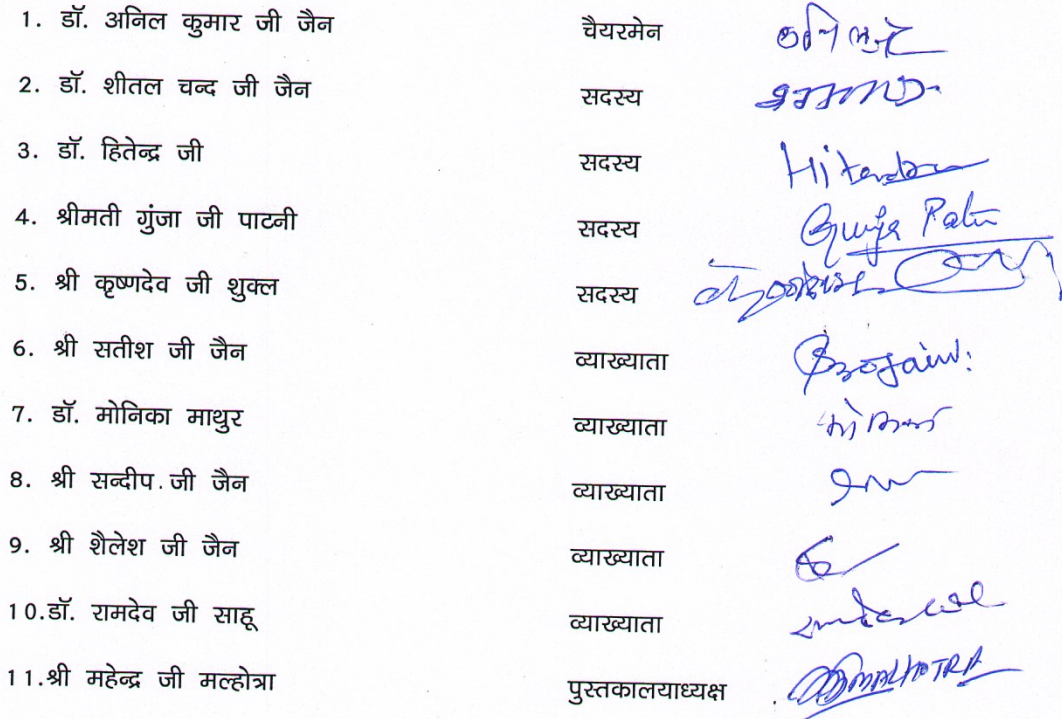 1. डॉ. अनिल कुमार जी जैन चैयरमेन
2. डॉ. शीतल चन्द जी जैन सदस्य
3. डॉ. हितेन्द्र जी सदस्य Hitendra
4. श्रीमती गुंजा जी पाटनी सदस्य
5. श्री कृष्णदेव जी शुक्ल सदस्य
6. श्री सतीश जी जैन व्याख्याता
7. डॉ. मोनिका माथुर व्याख्याता
8. श्री सन्दीप जी जैन व्याख्याता
9. श्री शैलेश जी जैन व्याख्याता
10.डॉ. रामदेव जी साहू व्याख्याता
11.श्री महेन्द्र जी मल्होत्रा पुस्तकालयाध्यक्ष MALHOTRA